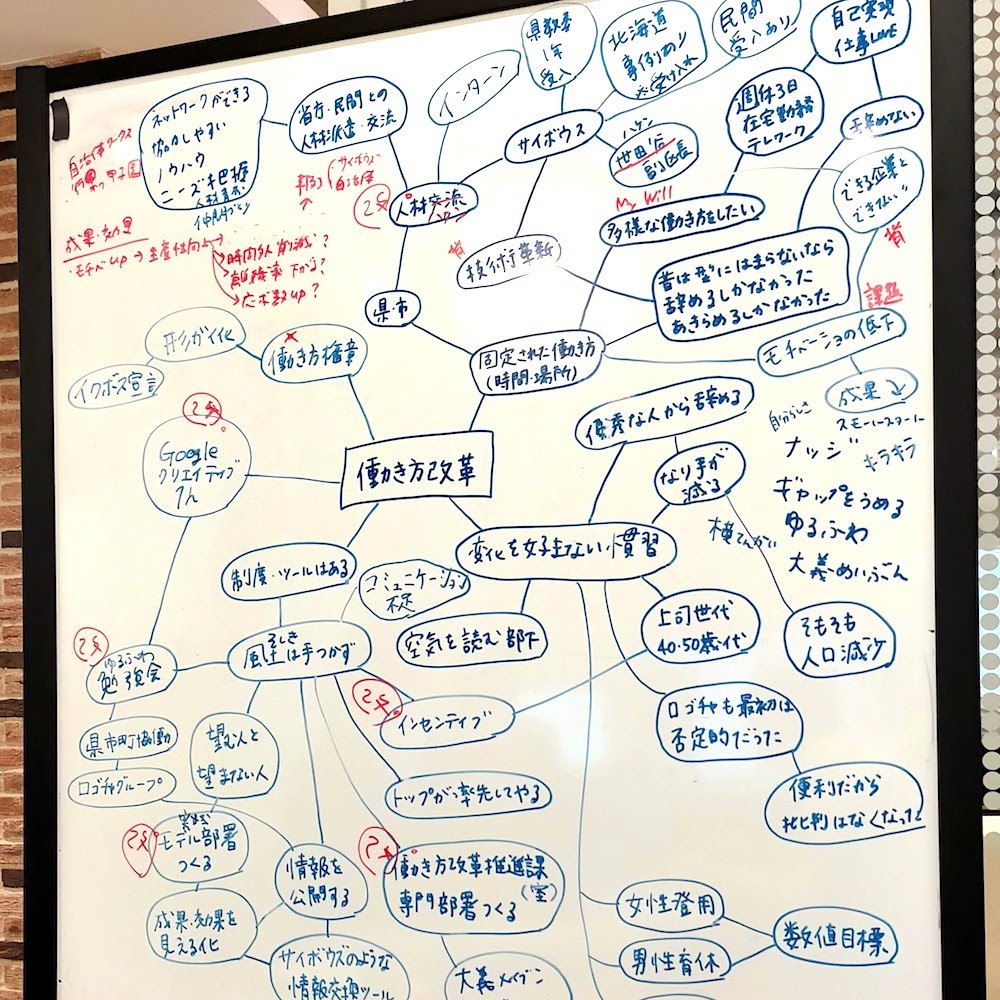 県教委
1年
受入
北海道
事例あり
受け入れ
民間
受入あり
自己実現
仕事LOVE
ネットワークができる
協力しやすい
ノウハウ
ニーズ把握
人材育成
仲間づくり
省庁・民間との
人材派遣・交流
インターン
サイボウズ
ハケン
世田谷
副区長
週休3日
在宅勤務
テレワーク
辞めない
できる企業と
できない〃
自治体ワークス
甲子園
成果・効果
・モチベup→生産性向上→
時間外人削減?
離職率下がる?
応募数up?
サイボウズ
自治体
2点
人材交流
My Will
多様な働き方をしたい
技術革新
昔は型にはまらないなら
辞めるしかなかった
あきらめるしかなかった
課題
県・市
形がい化
イクボス宣言
働き方憲章
固定された働き方
(時間・場所)
モチベーションの低下
成果
2点
Google
クリエイティブ
働き方改革
優秀な人から辞める
なり手が
減る
自分らしさ
スモールスタート
ナッジ
キラキラ
ギャップをうめる
ゆるふわ
大義めいぶん
横てんかい
変化を好まない慣習
制度・ツールはある
コミュニケーション
不足
空気を読む部下
上司世代
40・50歳代
そもそも
人口減少
2点
ゆるふわ
勉強会
風土は手つかず
2点
インセンティブ
ロゴチャも最初は
否定的だった
便利だから
批判はなくなった
県市町協働
ロゴチャグループ
望む人と
望まない人
トップが率先してやる
2点
モデル部署
つくる
情報を
公開する
2点
働き方改革推進課
(室)
専門部署つくる
成果・効果を
見える化
サイボウズのような
情報交換ツール
大義メイブン
女性登用
男性育休
数値目標